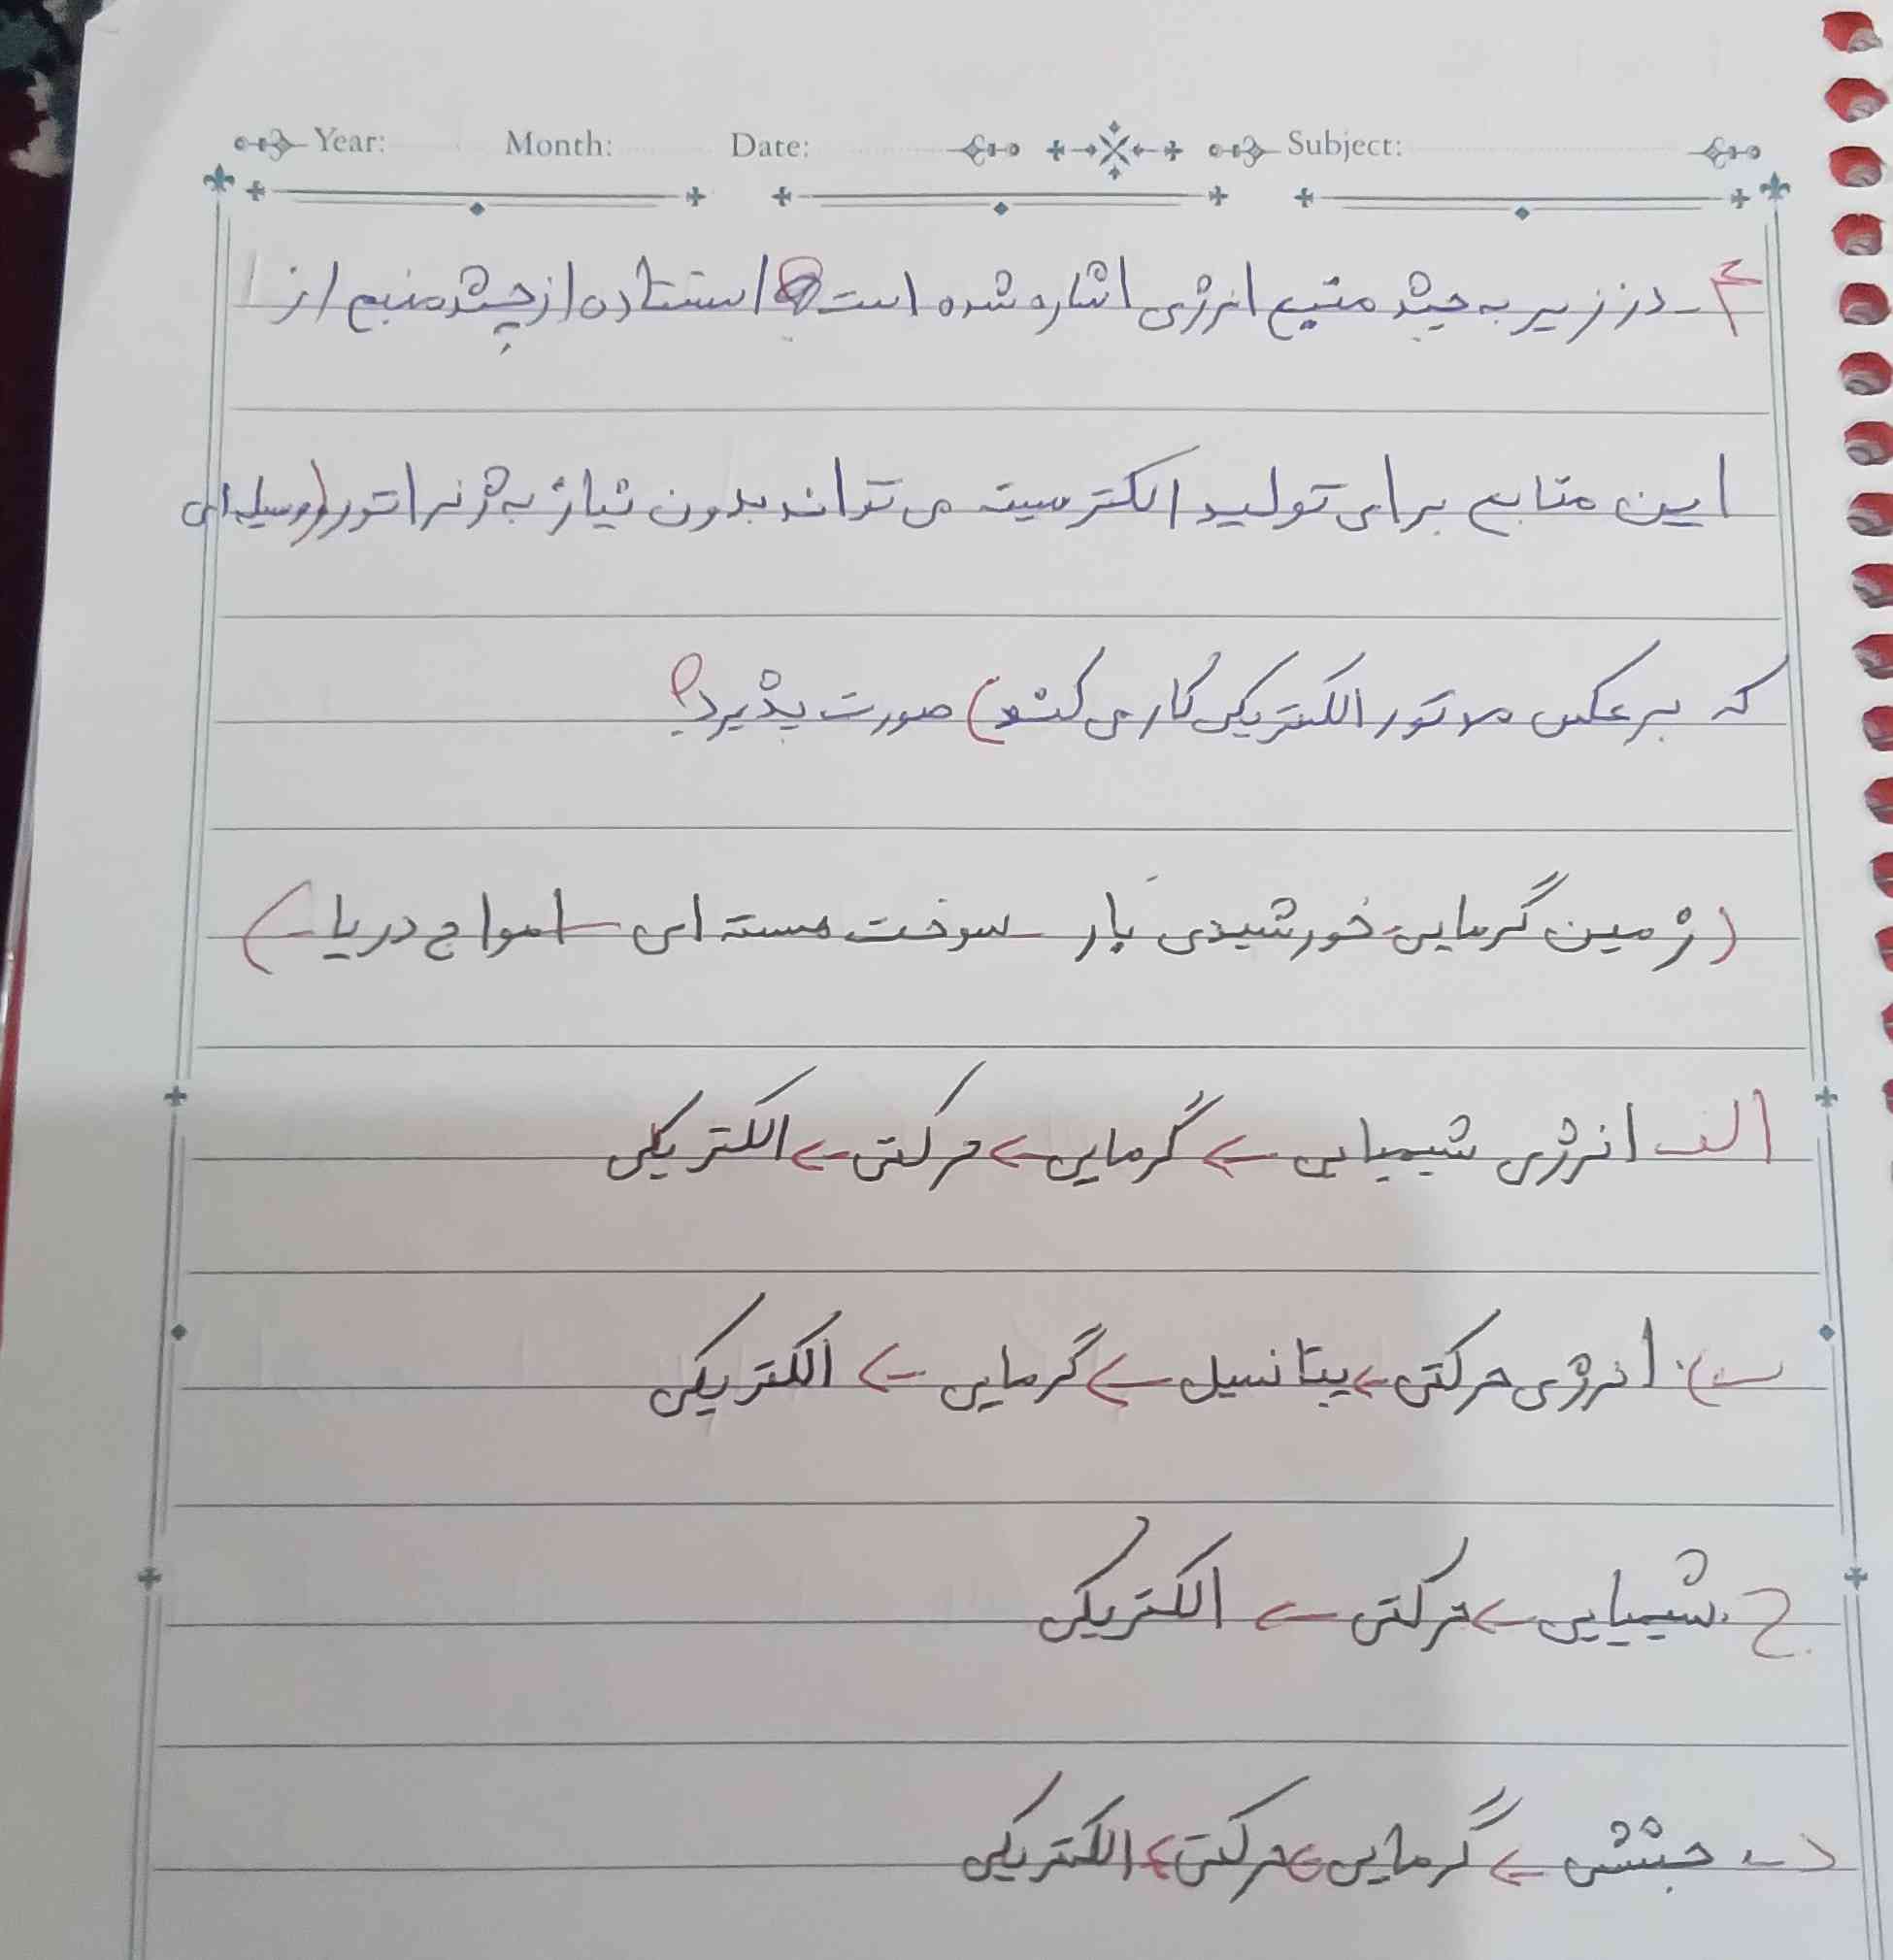 Year: Month: Date: Subject:
۴- در زیر به چند منبع انرژی اشاره شده است استفاده از چند منبع از
این منابع برای تولید الکتریسیته می تواند بدون نیاز به ژنراتور (وسیله ای
که برعکس موتور الکتریکی کار می کند) صورت پذیرد؟
(زمین گرمایی - خورشیدی - باد - سوخت هسته ای - امواج دریا)
الف انرژی شیمیایی ← گرمایی ← حرکتی ← الکتریکی
ب) انرژی حرکتی ← پتانسیل ← گرمایی ← الکتریکی
ج. شیمیایی ← حرکتی ← الکتریکی
د - جنبشی ← گرمایی ← حرکتی ← الکتریکی